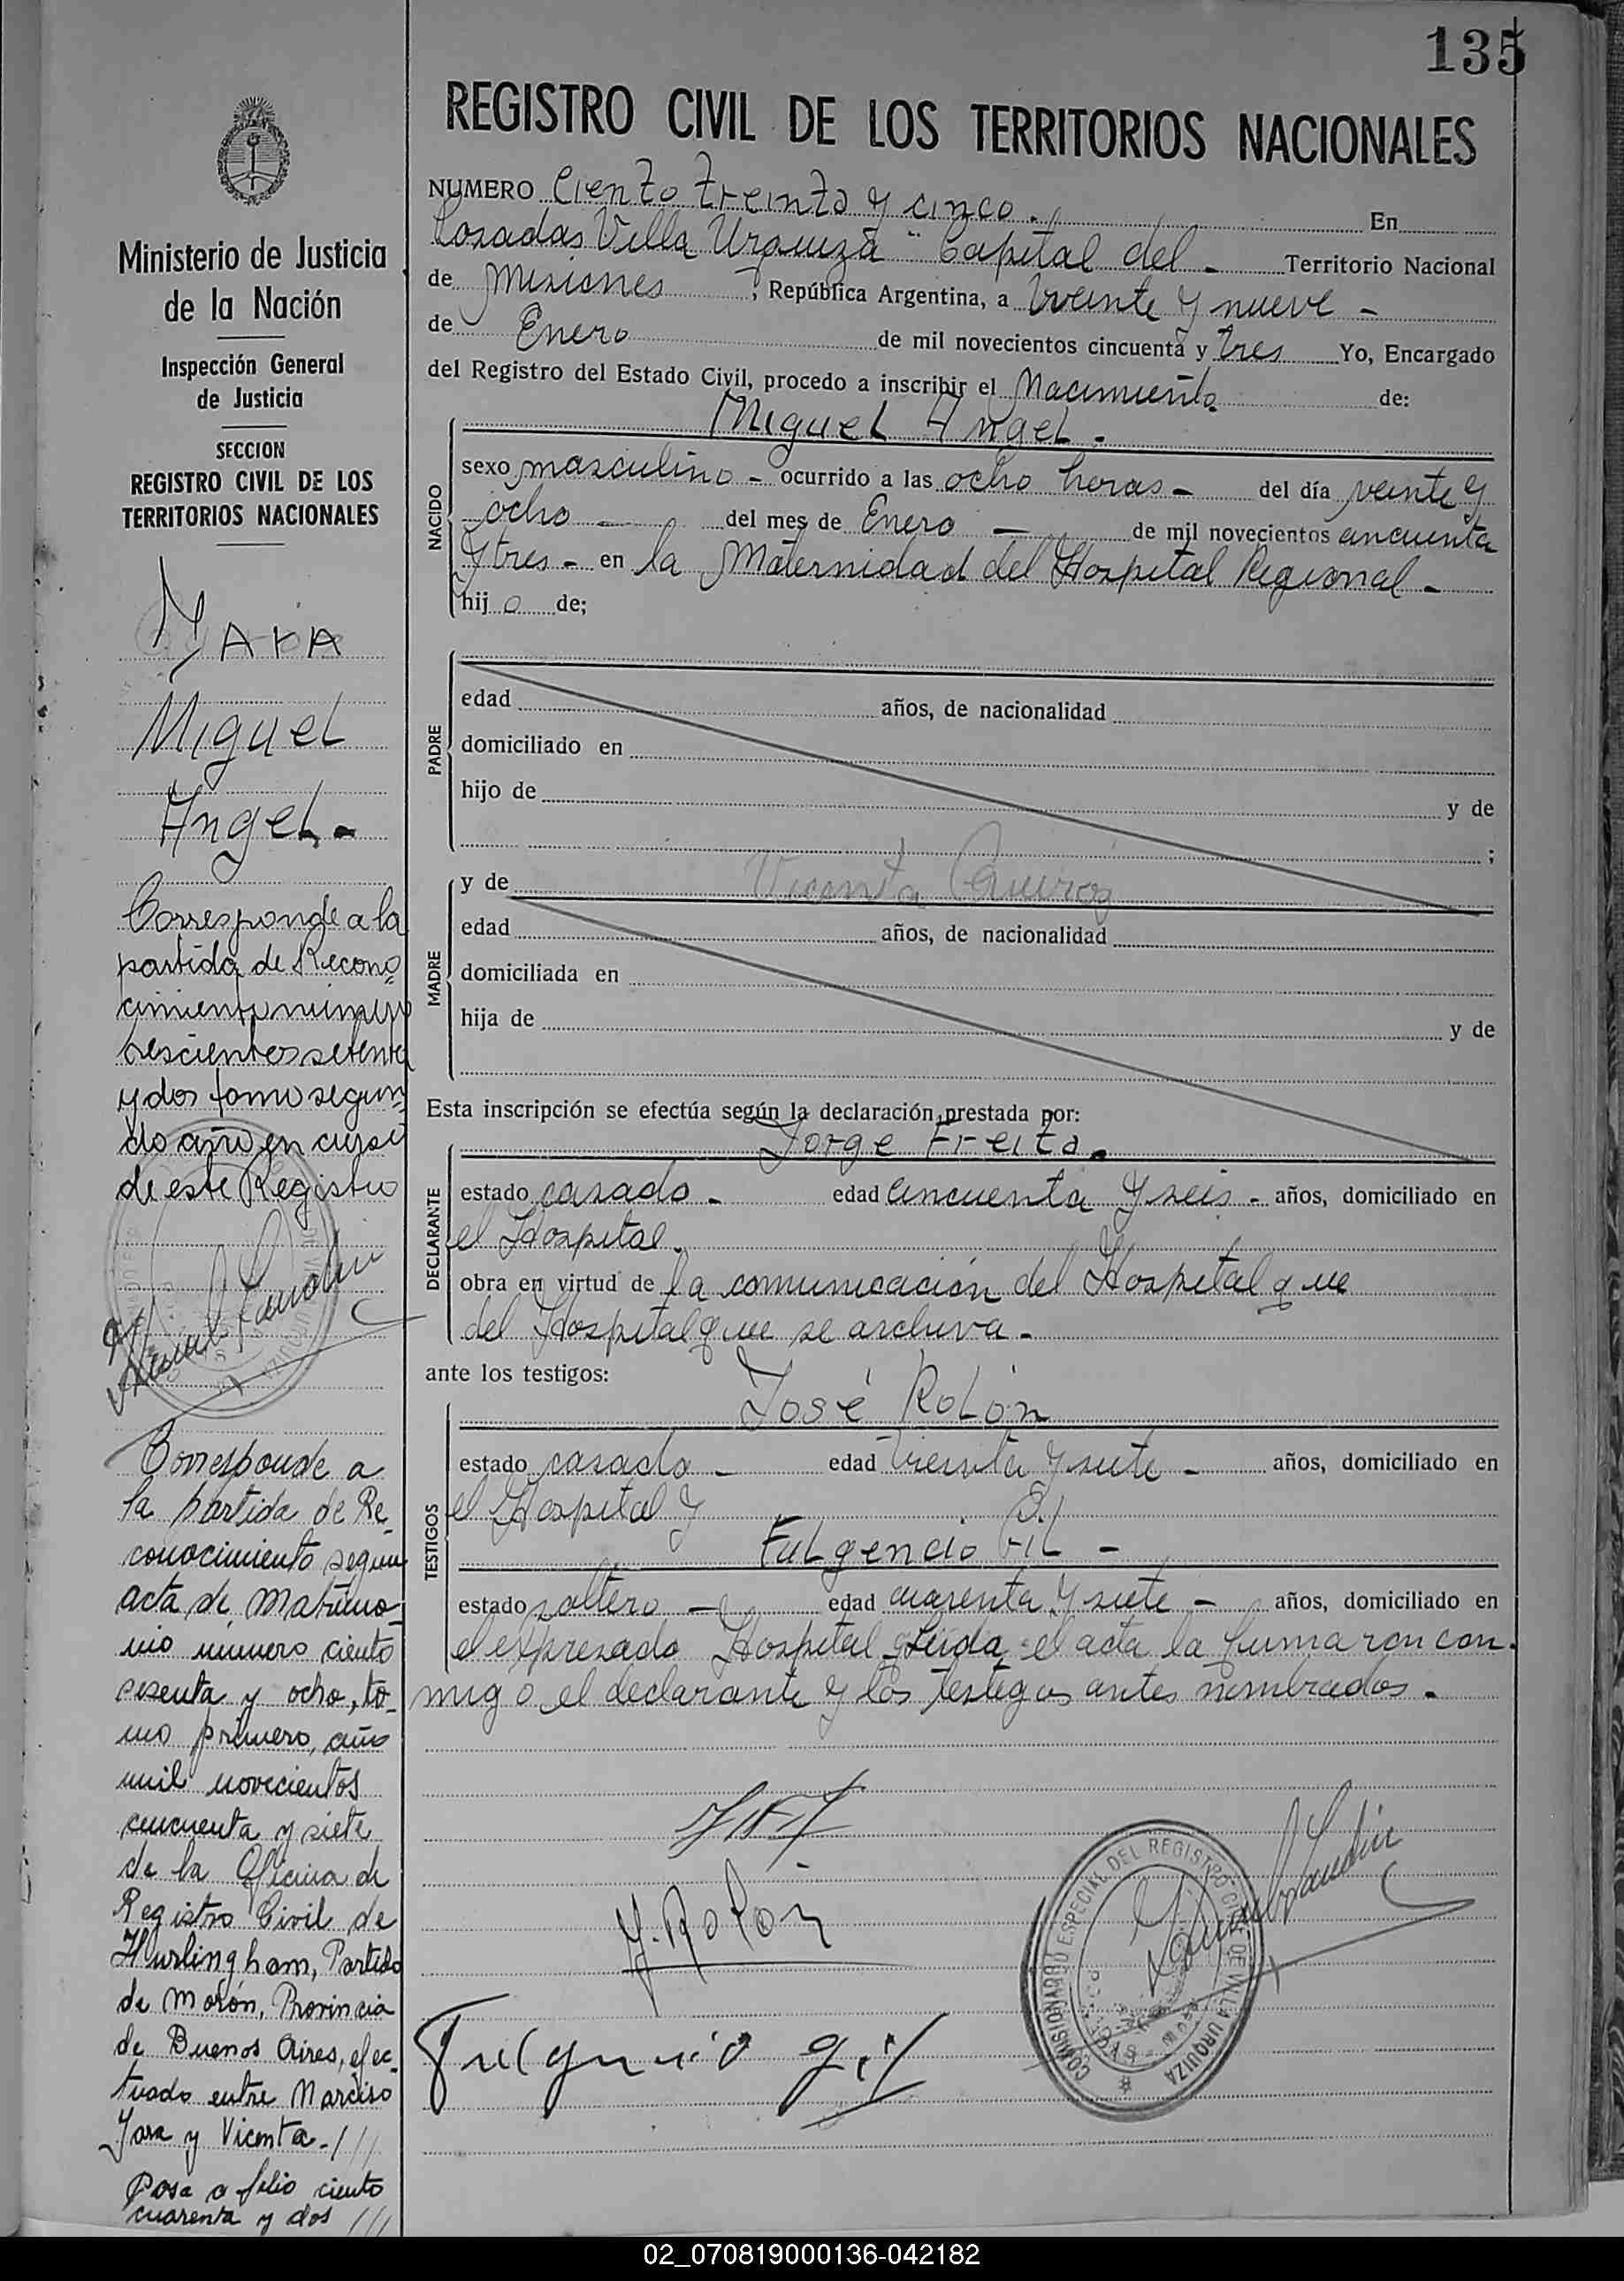 135
REGISTRO CIVIL DE LOS TERRITORIOS NACIONALES
NUMERO Ciento treinta y cinco. En
Posadas Villa Urquiza " Capital del - Territorio Nacional
de Misiones ; República Argentina, a Veinte y nueve -
de Enero de mil novecientos cincuenta y tres Yo, Encargado
del Registro del Estado Civil, procedo a inscribir el Nacimiento de:
Miguel Angel.
NACIDO
sexo masculino - ocurrido a las ocho horas - del día veinte y
ocho - del mes de Enero - de mil novecientos cincuenta
y tres - en la Maternidad del Hospital Regional -
hij o de;
PADRE
edad años, de nacionalidad
domiciliado en
hijo de y de
;
MADRE
y de Vicenta
edad años, de nacionalidad
domiciliada en
hija de y de
Esta inscripción se efectúa según la declaración prestada por:
Jorge Freita.
DECLARANTE
estado casado - edad cincuenta y seis - años, domiciliado en
el Hospital.
obra en virtud de la comunicación del Hospital que
del Hospital que se archiva -
ante los testigos:
José Rolón
TESTIGOS
estado casado - edad treinta y siete - años, domiciliado en
el Hospital y
Fulgencio Gil -
estado soltero - edad cuarenta y siete - años, domiciliado en
el expresado Hospital Leida el acta la firmaron con
migo el declarante y los testigos antes nombrados.
J. Rolón
Fulgencio gil
COMISIONARIO ESPECIAL DEL REGISTRO CIVIL DE VILLA URQUIZA
Ministerio de Justicia
de la Nación
Inspección General
de Justicia
SECCION
REGISTRO CIVIL DE LOS
TERRITORIOS NACIONALES
JARA
Miguel
Angel.-
Corresponde a la
partida de Recono
cimiento número
trescientos setenta
y dos tomo segun
do año en curso
de este Registro
Corresponde a
la partida de Re_
conocimiento segun
acta de Matrimo-
nio número ciento
sesenta y ocho, to-
mo primero, año
mil novecientos
cincuenta y siete
de la Oficina de
Registro Civil de
Hurlingham, Partido
de Morón, Provincia
de Buenos Aires, efec_
tuado entre Narciso
Jara y Vicenta -///
Pasa a folio ciento
cuarenta y dos ///
02_070819000136-042182